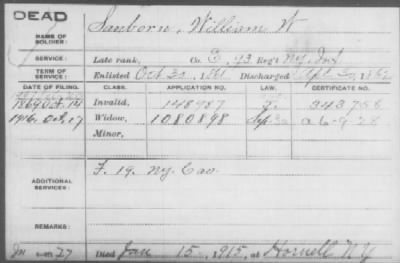 DEAD
NAME OF SOLDIER: Sanborn, William W
SERVICE: Late rank, Co. G, 43 Reg't N.Y. Inf
TERM OF SERVICE: Enlisted Oct 30, 1861 Discharged Sept 30, 1862
DATE OF FILING. CLASS. APPLICATION NO. LAW. CERTIFICATE NO.
1869 Oct. 14 Invalid, 148987 343758
1916. Oct. 17 Widow, 1080898 Sep. a 6-9-28
Minor,
ADDITIONAL SERVICES: F. 19. N.Y. Cav.
REMARKS:
Died Jan 15, 1915, at Hornell N.Y.